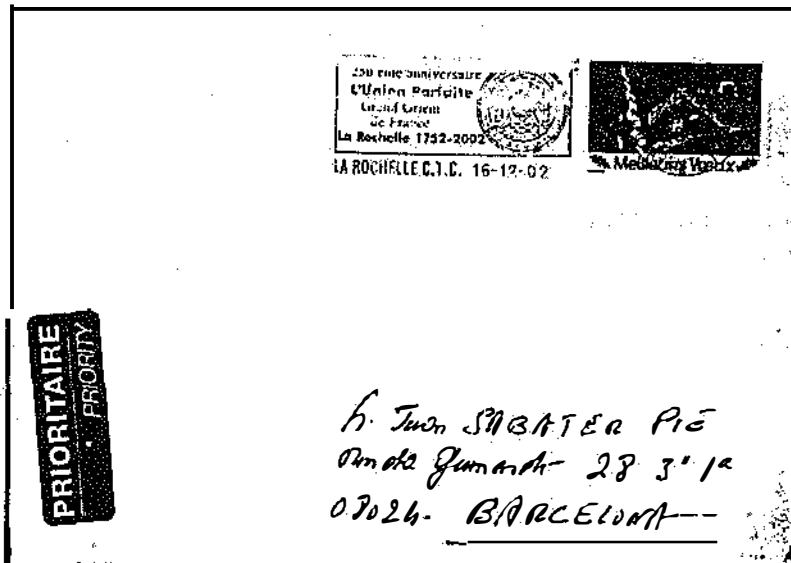 250 ème anniversaire
L'Union Parfaite
Grand Orient
de France
La Rochelle 1752-2002
LA ROCHELLE C.T.C. 16-12-02
Meilleurs Vœux
PRIORITAIRE
PRIORITY
Juan SABATER PIE
28 3º 1ª
08024. BARCELONA